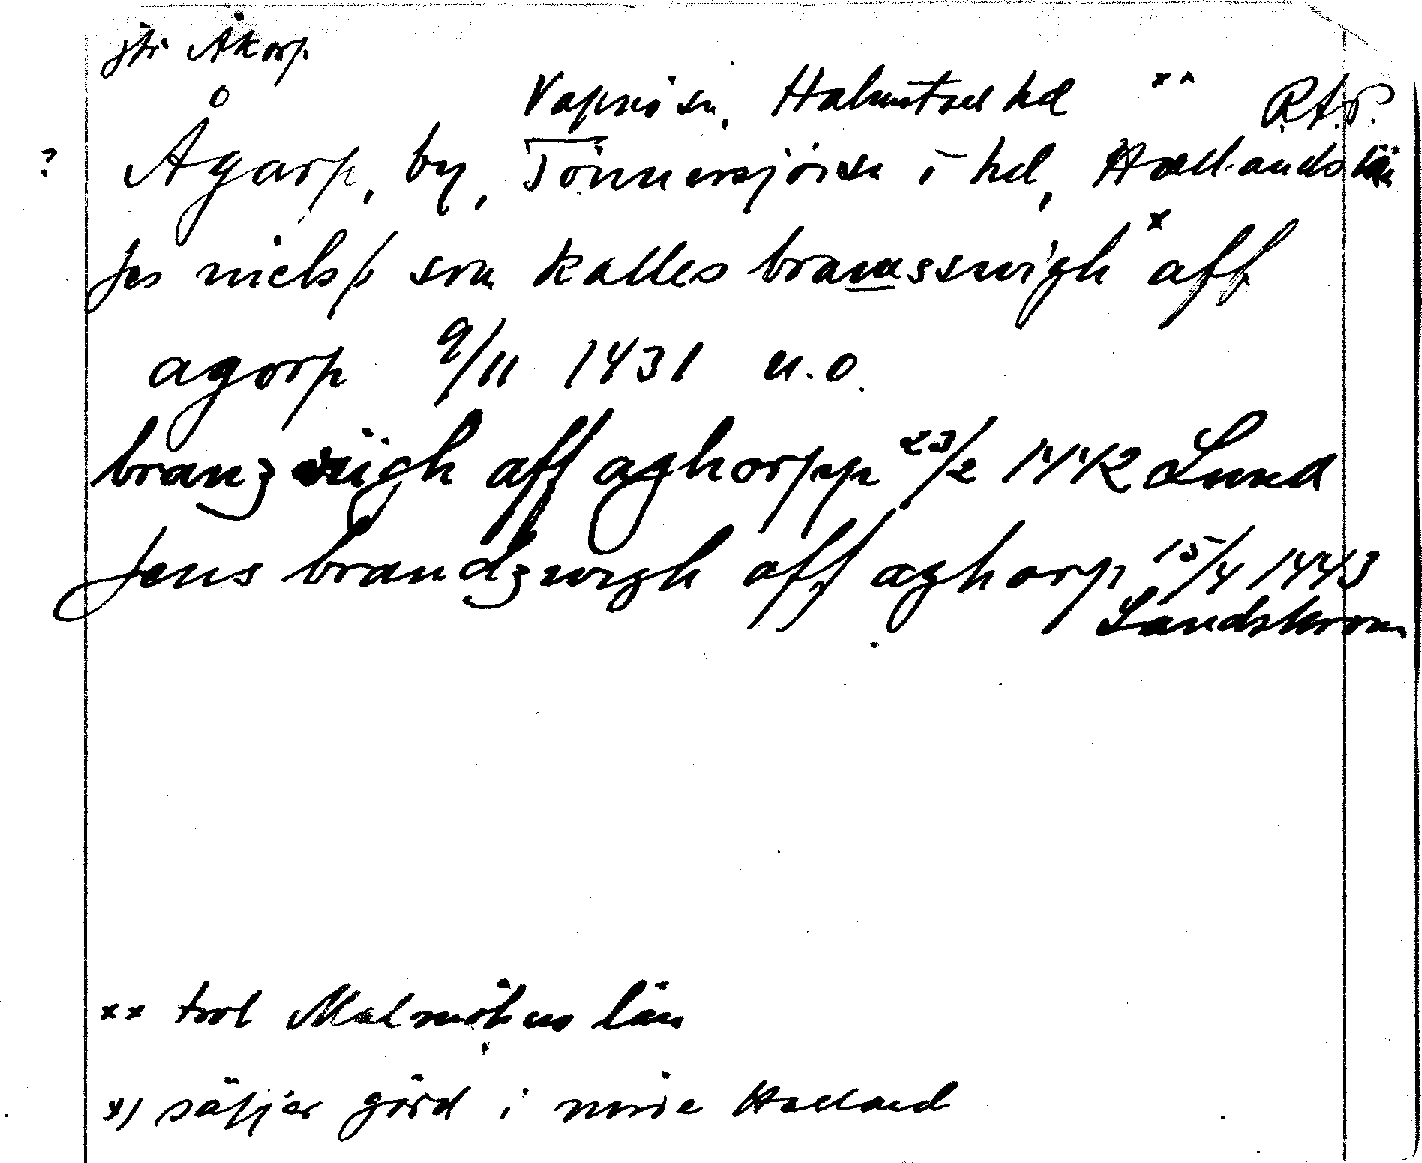 jfr Åkarp
Vapnö sn, Halmstad hd ** R.A.P.
? Ågarp, by, Tönnersjö sn o hd, Hallands län
Jes nielsß som kalles bramsswigh * aff
agorp 9/11 1431 u.o.
branzwigh aff aghorpp 23/2 1442 Lund
Jens brandzwigh aff aghorp 15/4 1443
Landskrona
** trol Malmöhus län
*) säljer gård i norra Halland